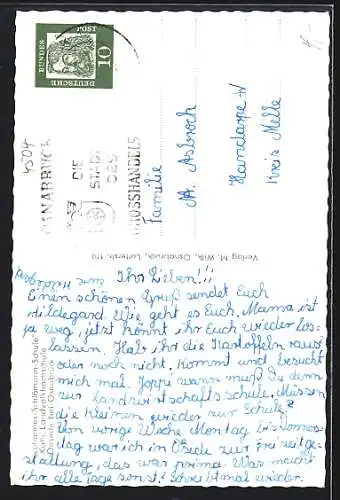 DEUTSCHE
BUNDES
POST
10
4504
OSNABRÜCK
DIE
STADT
DES
GROSSHANDELS
Familie
A. Asbrock
Handarpe 4
Kreis Melle
Verlag M. Wilk, Osnabrück, Lotterstr. 110
Johannes-Schlömann-Schule
Kath. Landvolkhochschule
Oesede bei Osnabrück
Ihr Lieben!!
Einen schönen Gruß sendet Euch
Hildegard. Wie geht es Euch. Mama ist
ja weg, jetzt könnt ihr Euch wieder los-
lassen. Hab ihr die Kartoffeln raus
oder noch nicht. Kommt und besucht
mich mal. Joppi wann mußt Du denn
zur Landwirtschaftsschule. Müssen
die Kleinen wieder zur Schule?
Von vorige Woche Montag bis Donners-
dag war ich in Osede zur Freizeitge-
staltung, das war prima. Was macht
ihr alle Tage sonst. Schreibt mal wieder.
eure Hildegard